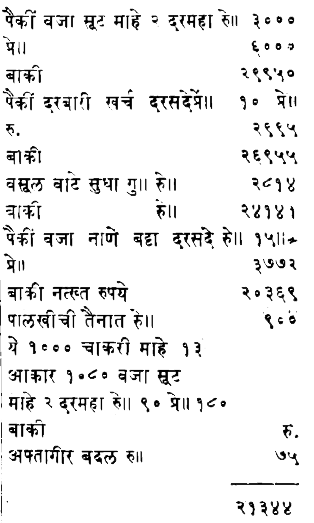 पैकीं वजा सूट माहे २ दरमहा रु॥ ३०००
प्रे॥ ६०००
बाकी २९९५०
पैकीं दरबारी खर्च दरसदेप्रें॥ १० प्रे॥
रु. २९९५
बाकी २६९५५
वसूल वाटे सुधा गु॥ रु॥ २८१४
बाकी रु॥ २४१४१
पैकीं वजा नाणे बट्टा दरसदे रु॥ १५॥=
प्रे॥ ३७७२
बाकी नख्त रुपये २०३६९
पालखीची तैनात रु॥ ९००
ये १००० चाकरी माहे १३
आकार १०८० वजा सूट
माहे २ दरमहा रु॥ ९० प्रे॥ १८०
बाकी रु.
अफ्तागीर बद्दल रु॥ ७५
२१३४४